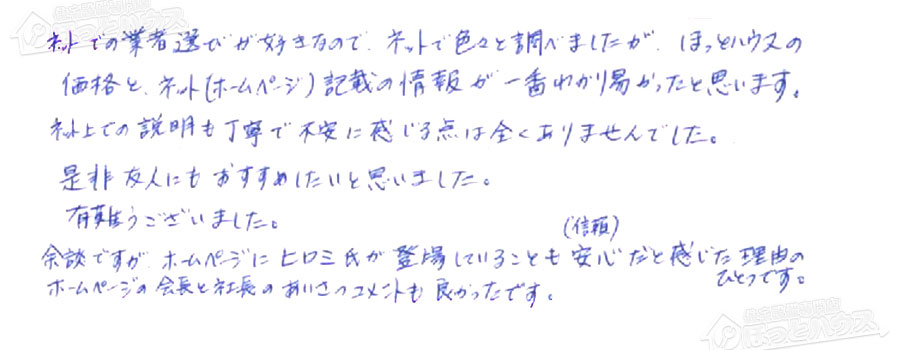 ネットでの業者選びが好きなので、ネットで色々と調べましたが、ほっとハウスの
価格と、ネット(ホームページ)記載の情報が一番わかり易かったと思います。
ネット上での説明も丁寧で不安に感じる点は全くありませんでした。
是非友人にもおすすめしたいと思いました。
有難うございました。
(信頼)
余談ですが、ホームページにヒロミ氏が登場していることも安心だと感じた理由の
ひとつです。
ホームページの会長と社長のあいさつコメントも良かったです。
ほっとハウス